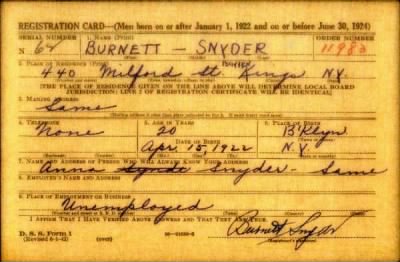 REGISTRATION CARD—(Men born on or after January 1, 1922 and on or before June 30, 1924)
SERIAL NUMBER 1. NAME (Print) ORDER NUMBER
N 62 BURNETT — SNYDER 11983
(First) (Middle) (Last)
2. PLACE OF RESIDENCE (Print)
440 Milford St. Kings N.Y.
[THE PLACE OF RESIDENCE GIVEN ON THE LINE ABOVE WILL DETERMINE LOCAL BOARD
JURISDICTION; LINE 2 OF REGISTRATION CERTIFICATE WILL BE IDENTICAL]
3. MAILING ADDRESS
Same
4. TELEPHONE 5. AGE IN YEARS 6. PLACE OF BIRTH
None 20 B'klyn
DATE OF BIRTH
Apr. 15, 1922 N.Y.
7. NAME AND ADDRESS OF PERSON WHO WILL ALWAYS KNOW YOUR ADDRESS
Anna Snyder — Same
8. EMPLOYER'S NAME AND ADDRESS
9. PLACE OF EMPLOYMENT OR BUSINESS
Unemployed
I AFFIRM THAT I HAVE VERIFIED ABOVE ANSWERS AND THAT THEY ARE TRUE.
D. S. S. Form 1
(Revised 6-1-42) Burnett Snyder